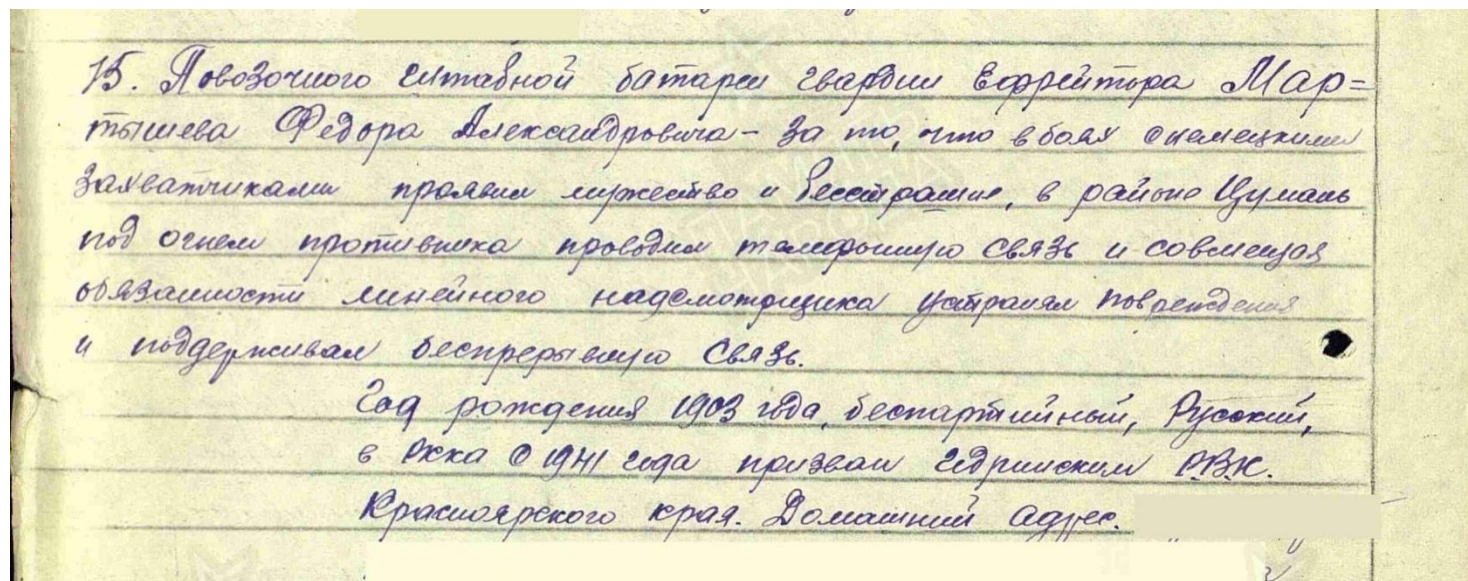 15. Повозочного штабной батареи гвардии Ефрейтора Мар=
тышева Федора Александровича - за то, что в боях с немецкими
захватчиками проявил мужество и бесстрашие, в районе Цумань
под огнем противника проводил телефонную связь и совмещая
обязанности линейного надсмотрщика устранял повреждения
и поддерживал беспрерывную связь.
Год рождения 1903 года, беспартийный, Русский,
в РККА с 1941 года призван РВК.
Красноярского края. Домашний адрес.